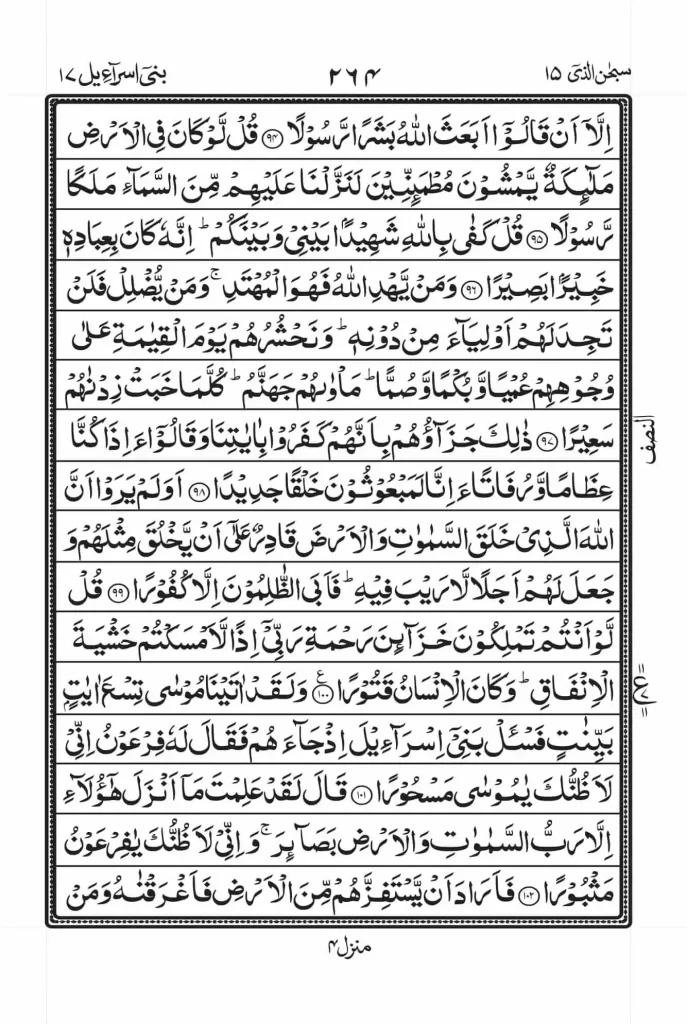 سبحٰن الذیٓ ۱۵
۲۶۴
بنیٓ اسرآءیل ۱۷
اِلَّاۤ اَنۡ قَالُوۡۤا اَبَعَثَ اللّٰهُ بَشَرًا رَّسُوۡلًا ﴿۹۴﴾ قُلۡ لَّوۡ كَانَ فِی الۡاَرۡضِ
مَلٰٓئِكَةٌ یَّمۡشُوۡنَ مُطۡمَئِنِّیۡنَ لَنَزَّلۡنَا عَلَیۡهِمۡ مِّنَ السَّمَآءِ مَلَكًا
رَّسُوۡلًا ﴿۹۵﴾ قُلۡ كَفٰی بِاللّٰهِ شَهِیۡدًۢا بَیۡنِیۡ وَ بَیۡنَكُمۡ ؕ اِنَّهٗ كَانَ بِعِبَادِهٖ
خَبِیۡرًۢا بَصِیۡرًا ﴿۹۶﴾ وَ مَنۡ یَّهۡدِ اللّٰهُ فَهُوَ الۡمُهۡتَدِ ۚ وَ مَنۡ یُّضۡلِلۡ فَلَنۡ
تَجِدَ لَهُمۡ اَوۡلِیَآءَ مِنۡ دُوۡنِهٖ ؕ وَ نَحۡشُرُهُمۡ یَوۡمَ الۡقِیٰمَةِ عَلٰی
وُجُوۡهِهِمۡ عُمۡیًا وَّ بُكۡمًا وَّ صُمًّا ؕ مَاۡوٰىهُمۡ جَهَنَّمُ ؕ كُلَّمَا خَبَتۡ زِدۡنٰهُمۡ
سَعِیۡرًا ﴿۹۷﴾ ذٰلِكَ جَزَآؤُهُمۡ بِاَنَّهُمۡ كَفَرُوۡا بِاٰیٰتِنَا وَ قَالُوۡۤا ءَاِذَا كُنَّا
النصف
عِظَامًا وَّ رُفَاتًا ءَاِنَّا لَمَبۡعُوۡثُوۡنَ خَلۡقًا جَدِیۡدًا ﴿۹۸﴾ اَوَ لَمۡ یَرَوۡا اَنَّ
اللّٰهَ الَّذِیۡ خَلَقَ السَّمٰوٰتِ وَ الۡاَرۡضَ قَادِرٌ عَلٰۤی اَنۡ یَّخۡلُقَ مِثۡلَهُمۡ وَ
جَعَلَ لَهُمۡ اَجَلًا لَّا رَیۡبَ فِیۡهِ ؕ فَاَبَی الظّٰلِمُوۡنَ اِلَّا كُفُوۡرًا ﴿۹۹﴾ قُلۡ
لَّوۡ اَنۡتُمۡ تَمۡلِكُوۡنَ خَزَآئِنَ رَحۡمَةِ رَبِّیۡۤ اِذًا لَّاَمۡسَكۡتُمۡ خَشۡیَةَ
الۡاِنۡفَاقِ ؕ وَ كَانَ الۡاِنۡسَانُ قَتُوۡرًا ﴿۱۰۰﴾ ع وَ لَقَدۡ اٰتَیۡنَا مُوۡسٰی تِسۡعَ اٰیٰتٍۭ
بَیِّنٰتٍ فَسۡـَٔلۡ بَنِیۡۤ اِسۡرَآءِیۡلَ اِذۡ جَآءَهُمۡ فَقَالَ لَهٗ فِرۡعَوۡنُ اِنِّیۡ
لَاَظُنُّكَ یٰمُوۡسٰی مَسۡحُوۡرًا ﴿۱۰۱﴾ قَالَ لَقَدۡ عَلِمۡتَ مَاۤ اَنۡزَلَ هٰۤؤُلَآءِ
اِلَّا رَبُّ السَّمٰوٰتِ وَ الۡاَرۡضِ بَصَآئِرَ ۚ وَ اِنِّیۡ لَاَظُنُّكَ یٰفِرۡعَوۡنُ
مَثۡبُوۡرًا ﴿۱۰۲﴾ فَاَرَادَ اَنۡ یَّسۡتَفِزَّهُمۡ مِّنَ الۡاَرۡضِ فَاَغۡرَقۡنٰهُ وَ مَنۡ
منزل ۴